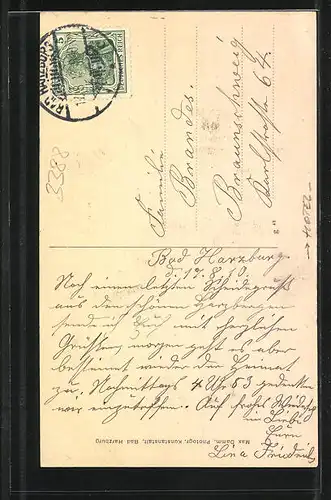 BAD HARZBURG
DEUTSCHES REICH
3388
Familie
Brandes.
Braunschweig
Karlstraße 64.
Bad Harzburg.
d. 17.8.10.
Noch einen letzten Scheidegruß
aus den schönen Harzbergen
sende ich Euch mit herzlichen
Grüßen, morgen geht es aber
bestimmt wieder der Heimat
zu. Nachmittags 4 Uhr 53 gedenken
wir einzutreffen. Auf frohes Wiedersehn
in Liebe
Eure
Lina Friedrichs
Max Damm, Photogr. Kunstanstalt, Bad Harzburg